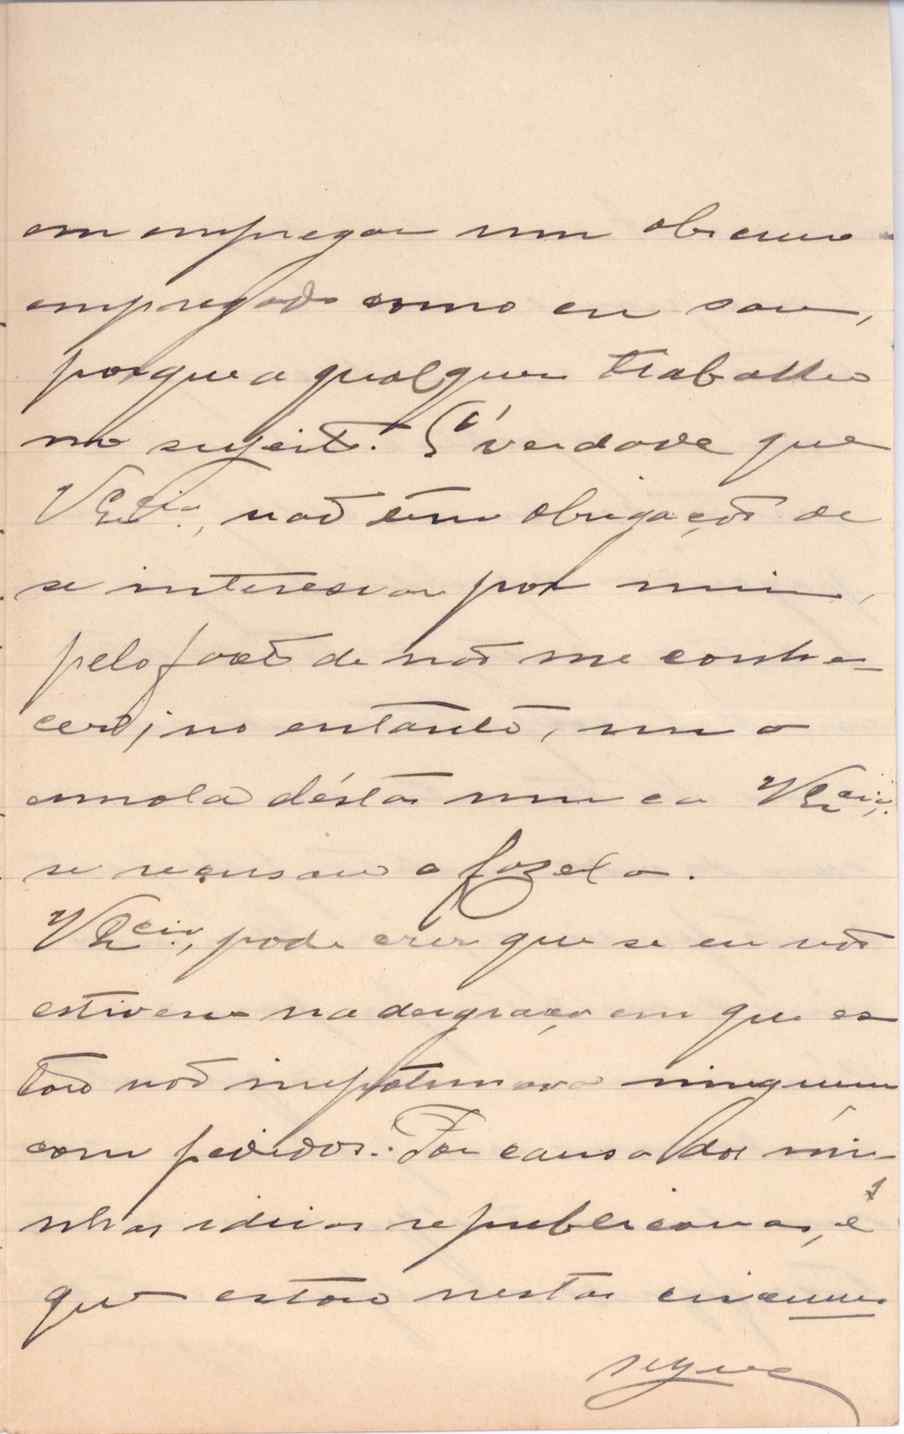 em empregar um obscuro
empregado como eu sou,
porque a qualquer trabalho
me sujeito. É verdade que
V Ex.cia, não tem obrigação de
se interessar por mim,
pelo facto de não me conhe-
cer; no entanto, uma
esmola désta nunca V Ex.cia,
se recusou a fazela.
V Ex.cia, pode crer que se eu não
estivesse na desgraça em que es
tou não importunava ninguem
com pedidos. Por causa das mi-
nhas ideias republicanas, é
que estou nestas circums
segue